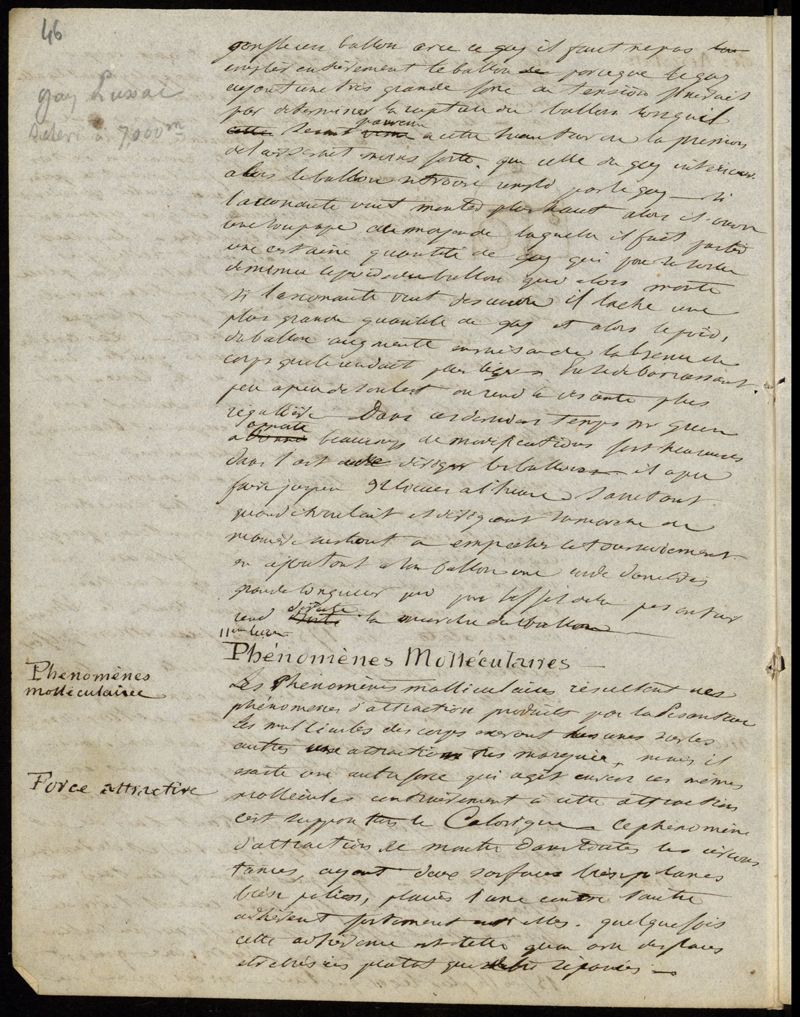 46
gay Lussac
s'elève à 7000 m
gonfle un ballon avec ce gaz il faut ne pas
emplir entièrement le ballon parceque le gaz
ayant une très grande force de tension finirait
par déterminer la rupture du ballon lorsqu'il
serait parvenu à cette hauteur ou la pression
de l'air serait moins forte que celle du gaz intérieur
alors le ballon se trouve rempli par le gaz — Si
l'aéronaute veut monter plus haut alors il ouvre
une soupape au moyen de laquelle il fait sortir
une certaine quantité de gaz qui
diminue le poids du ballon qui alors monte
Si l'aéronaute veut descendre il lache une
plus grande quantité de gaz et alors le poids
du ballon augmente en raison de l'absence du
corps qui le rendait plus léger En se débarrassant
peu à peu de son lest on rend la descente plus
régulière Dans ces derniers temps mr green
a beaucoup de modifications fort heureuses
dans l'art de diriger les ballons il a pu
faire jusqu'à lieues à l'heure s'arrêtant
quand il voulait et dirigeant sa marche de
manière surtout à empecher le tournoiement
en ajoutant à son ballon une corde d'une très
grande longueur qui par l'effet de la pesanteur
rend la marche du ballon
11eme leçon
Phénomènes Molléculaires —
Phenomènes
molléculaires
Les Phénomènes molléculaires résultent des
phénomènes d'attraction produits par la Pesanteur
Les mollécules des corps exercent les unes sur les
autres une attraction très marquée, mais il
existe une autre force qui agit envers ces mêmes
Force attractive
mollécules contrairement à cette attraction
c'est le Calorique — Ce phénomène
d'attraction se montre dans toutes les circons
tances, ayant deux surfaces bien planes
bien polies, placées l'une contre l'autre
adhérent fortement entre elles. quelquefois
cette adhérence est telle qu'on a vu des glaces
se briser plutot que séparées —